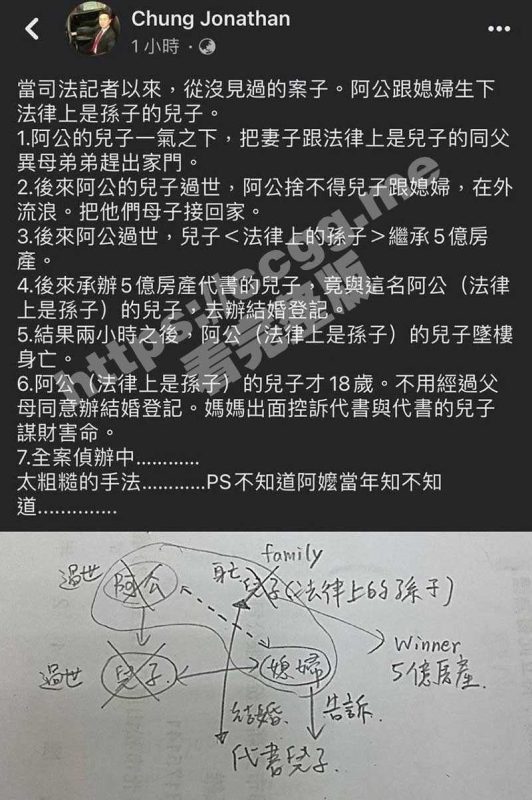 Chung Jonathan
1小時・
當司法記者以來，從沒見過的案子。阿公跟媳婦生下
法律上是孫子的兒子。
1.阿公的兒子一氣之下，把妻子跟法律上是兒子的同父
異母弟弟趕出家門。
2.後來阿公的兒子過世，阿公捨不得兒子跟媳婦，在外
流浪。把他們母子接回家。
3.後來阿公過世，兒子＜法律上的孫子＞繼承5億房
產。
4.後來承辦5億房產代書的兒子，竟與這名阿公（法律
上是孫子）的兒子，去辦結婚登記。
5.結果兩小時之後，阿公（法律上是孫子）的兒子墜樓
身亡。
6.阿公（法律上是孫子）的兒子才18歲。不用經過父
母同意辦結婚登記。媽媽出面控訴代書與代書的兒子
謀財害命。
7.全案偵辦中............
太粗糙的手法............PS不知道阿嬤當年知不知
道..............
https://ccgg.me
看完整版
family
過世 阿公 兒子(法律上的孫子)
Winner
過世 兒子 媳婦 5億房產.
結婚. 告訴.
代書兒子.